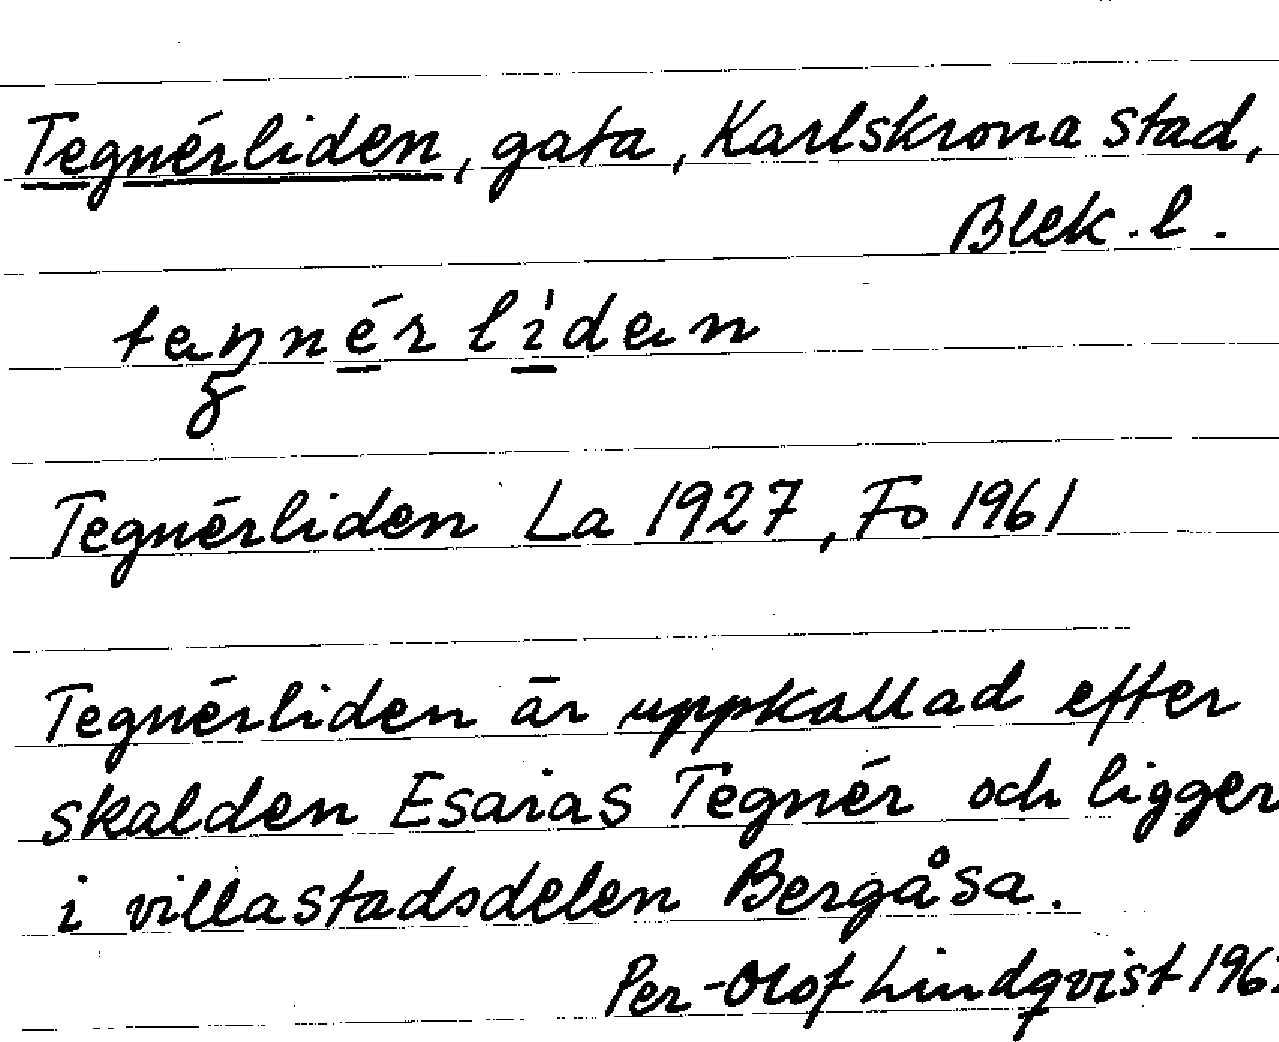 Tegnérliden, gata, Karlskrona stad,
Blek. l.
taŋnérlídan
Tegnérliden La 1927, Fo 1961
Tegnérliden är uppkallad efter
skalden Esaias Tegnér och ligger
i villastadsdelen Bergåsa.
Per-Olof Lindqvist